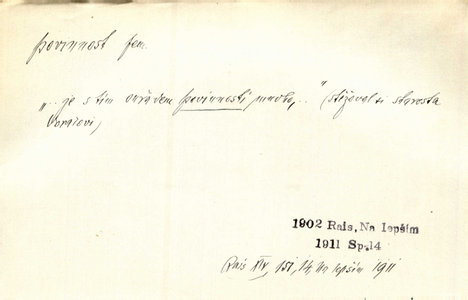 povinnost fem.
„..je s tím ouřadem povinností mnoho,.." (stěžoval si starosta
1902 Rais, Na lepším
1911 Sp.14
Rais XIV, 151, 14, Na lepším 1911